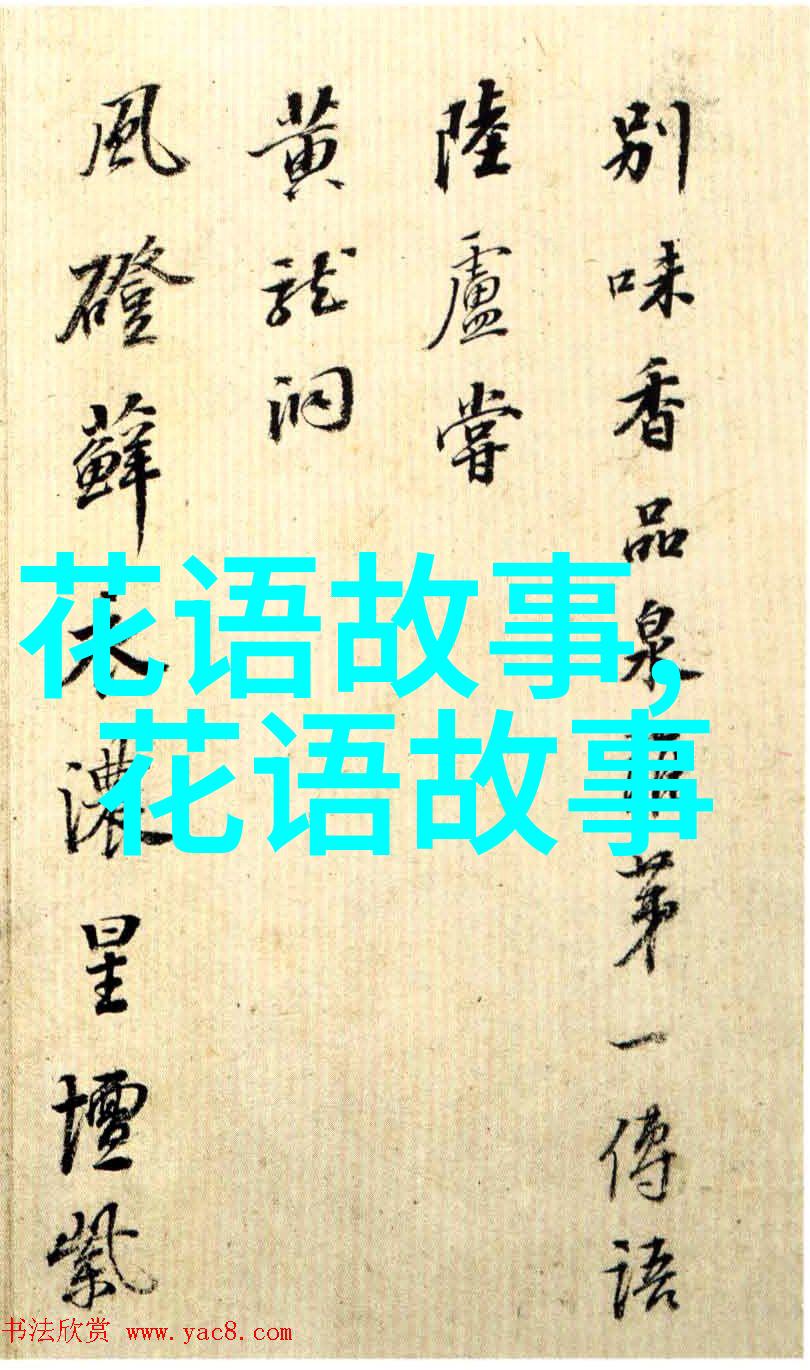 别味香品泉第一傳語
陸盧嘗
黄龍洞
風磴蘚濃星壇紫
花语故事,
花语故事
书法欣赏 www.yac8.com